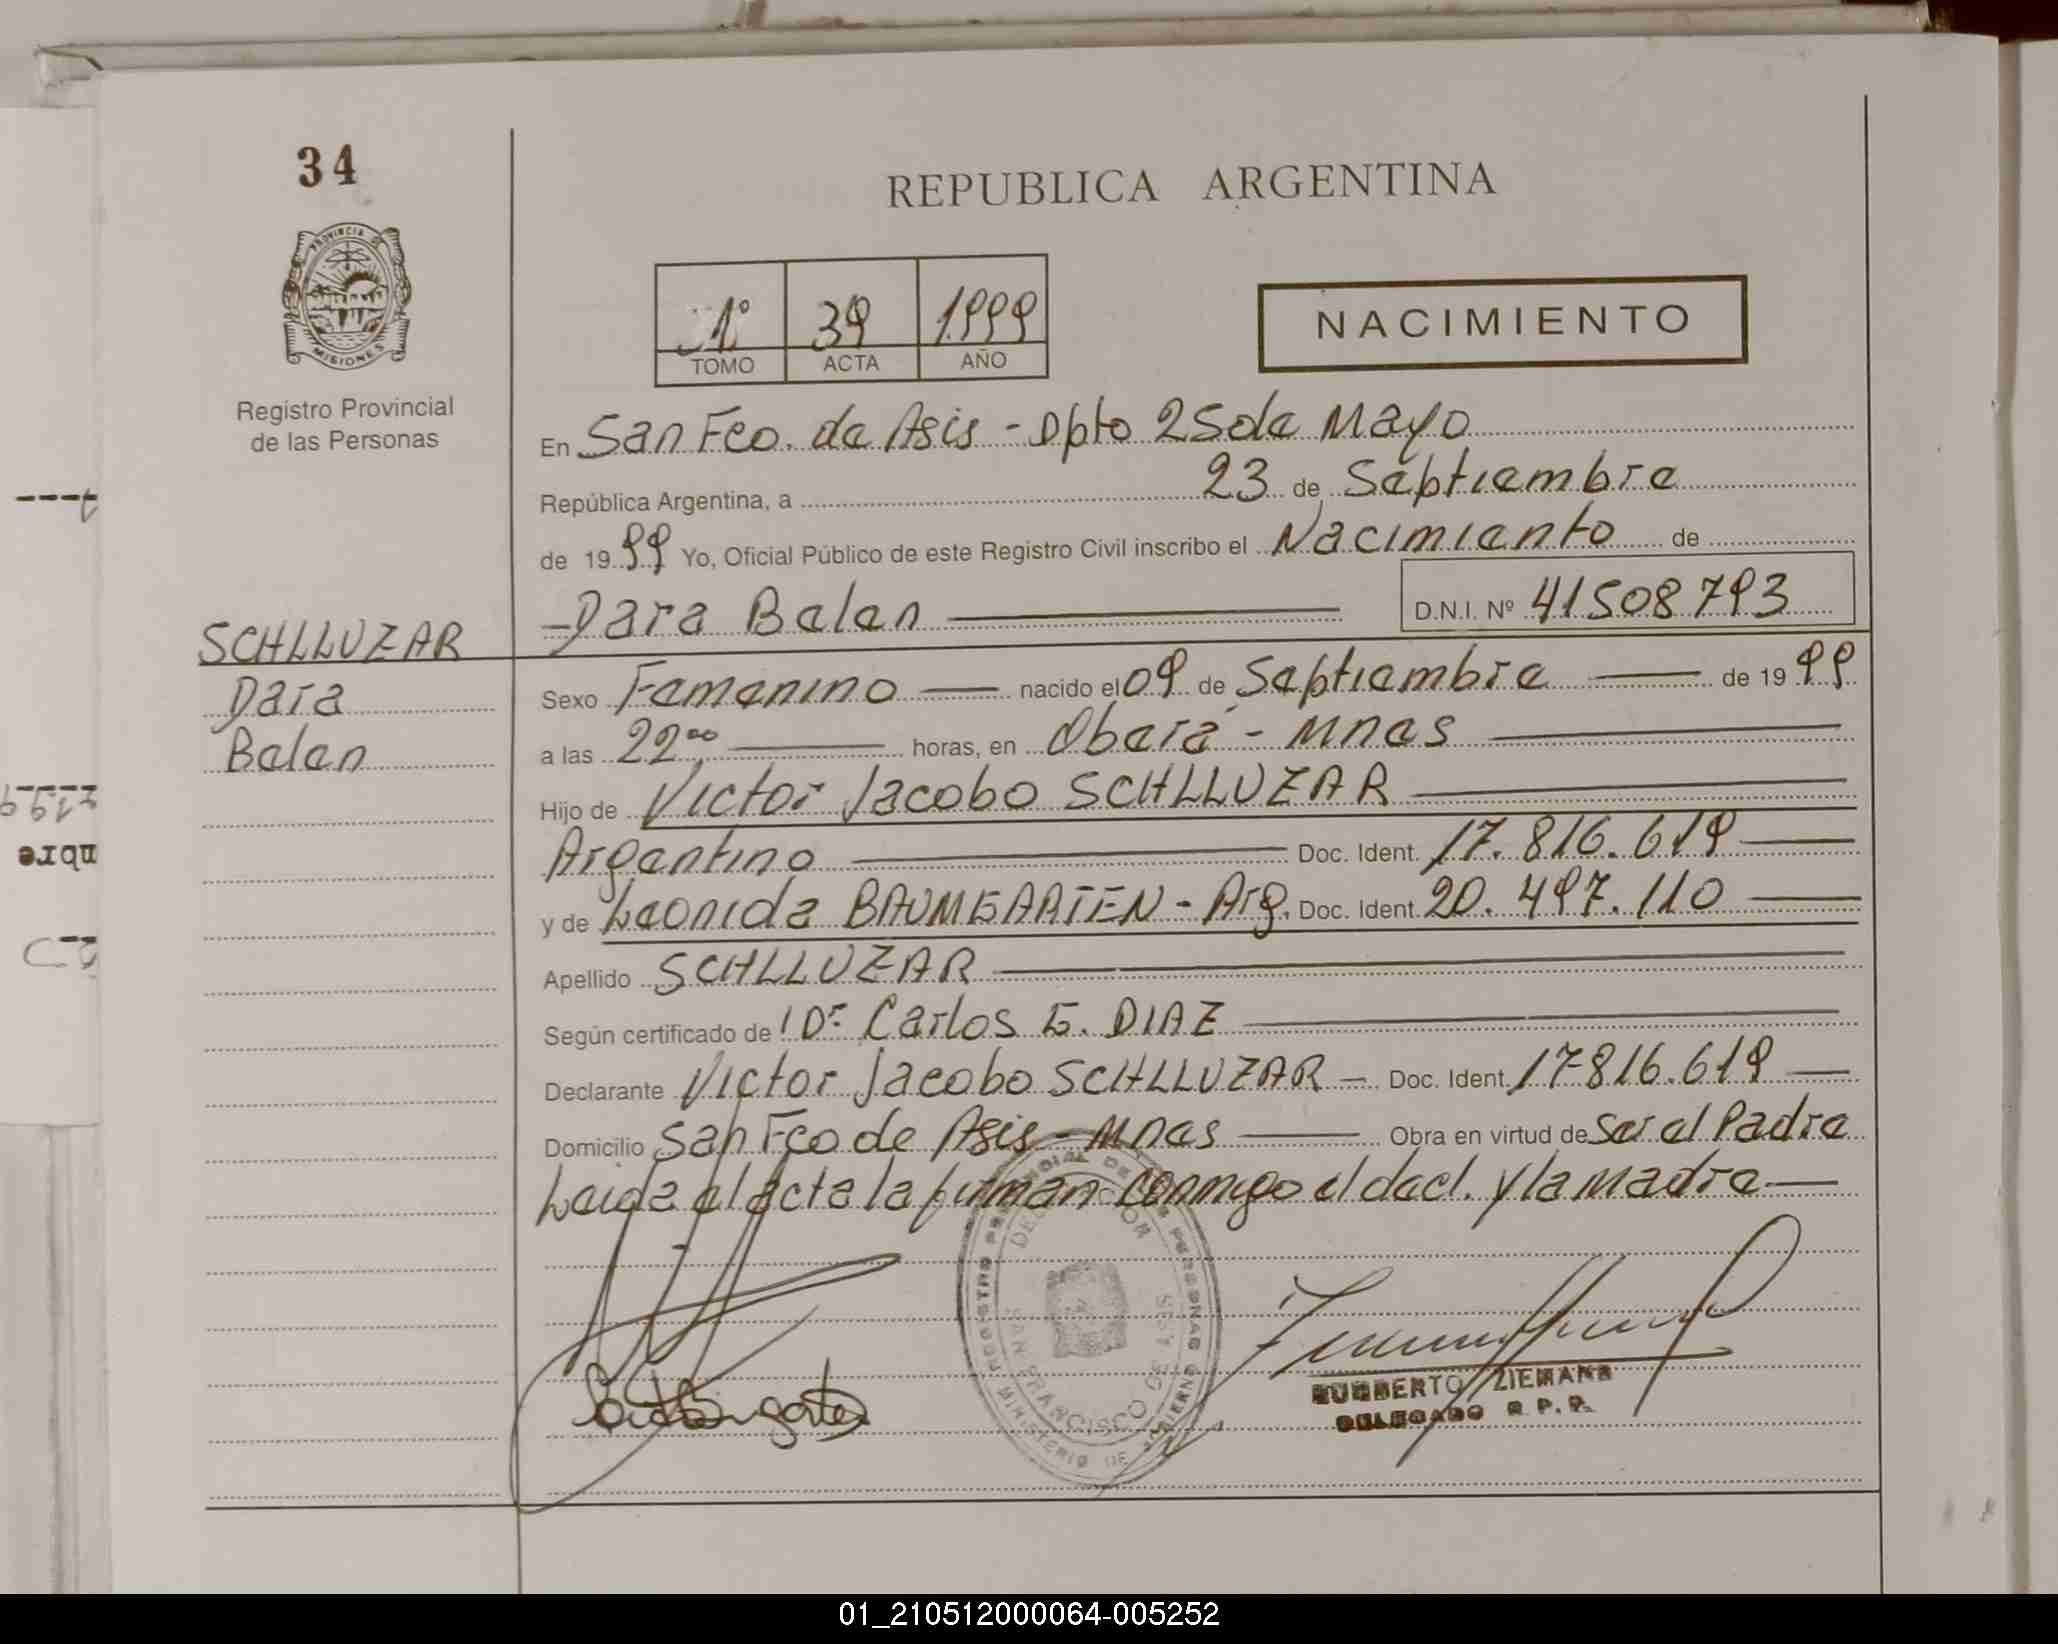 34
REPUBLICA ARGENTINA
PROVINCIA DE
MISIONES
1º 39 1.999
TOMO ACTA AÑO
NACIMIENTO
Registro Provincial
de las Personas
En San Fco. de Asis - Dpto 25 de Mayo
República Argentina, a 23 de Septiembre
de 1999 Yo, Oficial Público de este Registro Civil inscribo el Nacimiento de
Dara Belen D.N.I. Nº 41508793
SCHLLUZAR
Dara
Belen
Sexo Femenino nacido el 09 de Septiembre de 1999
a las 22ºº horas, en Oberá - Mnes
Hijo de Victor Jacobo SCHLLUZAR
Argentino Doc. Ident. 17.816.619
y de Leonida BAUMGARTEN - Arg. Doc. Ident. 20.497.110
Apellido SCHLLUZAR
Según certificado de Dr Carlos E. DIAZ
Declarante Victor Jacobo SCHLLUZAR Doc. Ident. 17816.619
Domicilio San Fco de Asis - Mnes Obra en virtud de Ser el Padre
Leida el acta la firman conmigo el decl. y la Madre
REGISTRO PROVINCIAL DE LAS PERSONAS
MINISTERIO DE GOBIERNO
SAN FRANCISCO DE ASIS
HUMBERTO ZIEMANN
DELEGADO R.P.P.
01_210512000064-005252